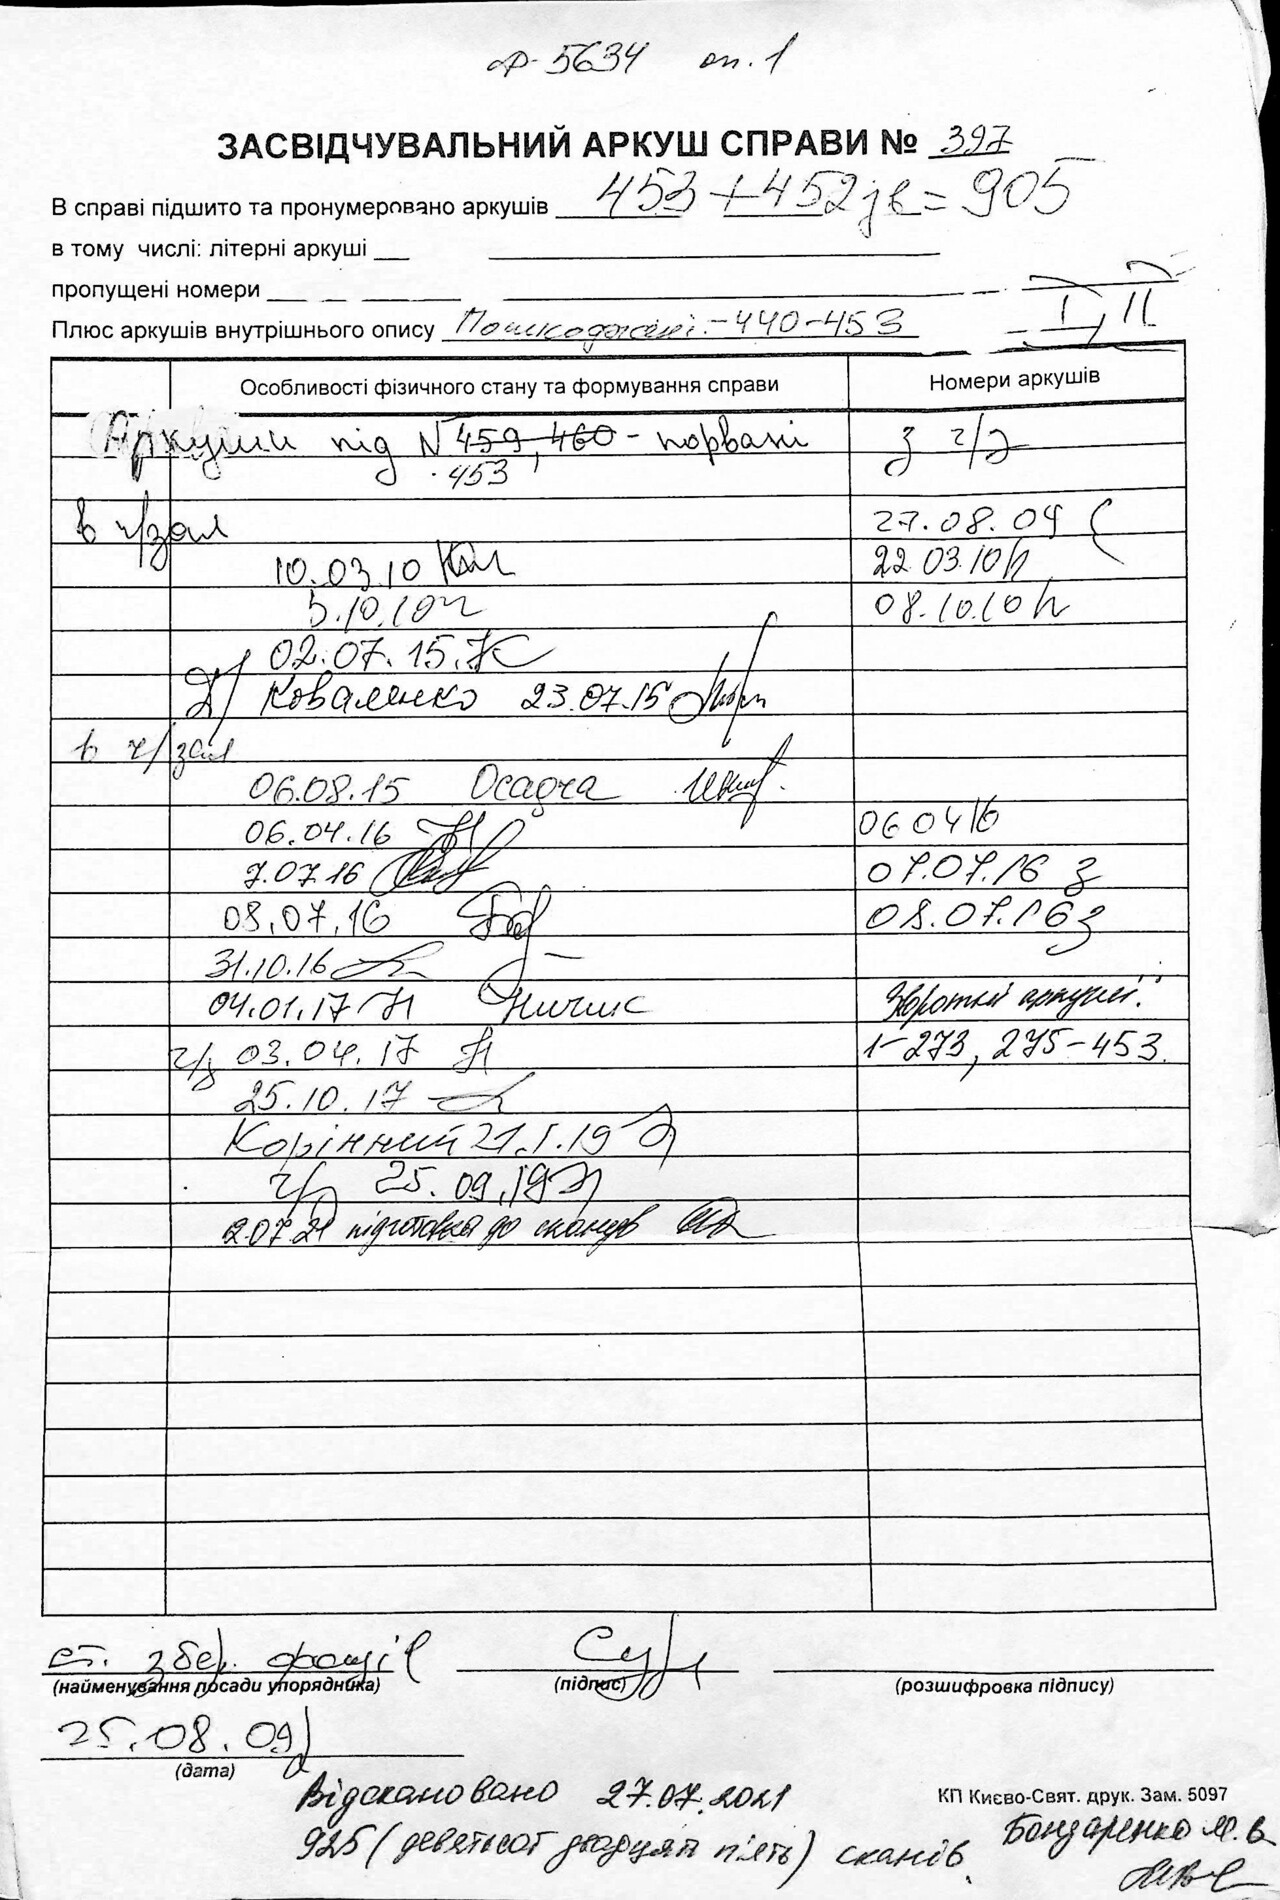 ф-5634 оп. 1
ЗАСВІДЧУВАЛЬНИЙ АРКУШ СПРАВИ № 397
В справі підшито та пронумеровано аркушів 453 + 452 зв = 905
в тому числі: літерні аркуші
пропущені номери
Плюс аркушів внутрішнього опису Пошкоджені: - 440-453 I, II
Особливості фізичного стану та формування справи Номери аркушів
Аркуши під № 459, 460 - порвані з ч/з
453
в ч/зал 27.08.09
10.03.10 22.03.10
5.10.10 08.10.10
02.07.15
Коваленко 23.07.15
в ч/зал
06.08.15 Осадча
06.04.16 06 04 16
7.07.16 07.07.16
08.07.16 08.07.16
31.10.16
04.01.17 Зворотні аркуші:
ч/з 03.04.17 1-273, 275-453.
25.10.17
Корінний 21.I.19
ч/з 25.09.19
2.07.21 підготовка до сканув
ст. збер. фондів
(найменування посади упорядника) (підпис) (розшифровка підпису)
25.08.09
(дата)
Відскановано 27.07.2021
КП Києво-Свят. друк. Зам. 5097
925 (девятсот двадцят п'ять) сканів.
Бондаренко М.В.